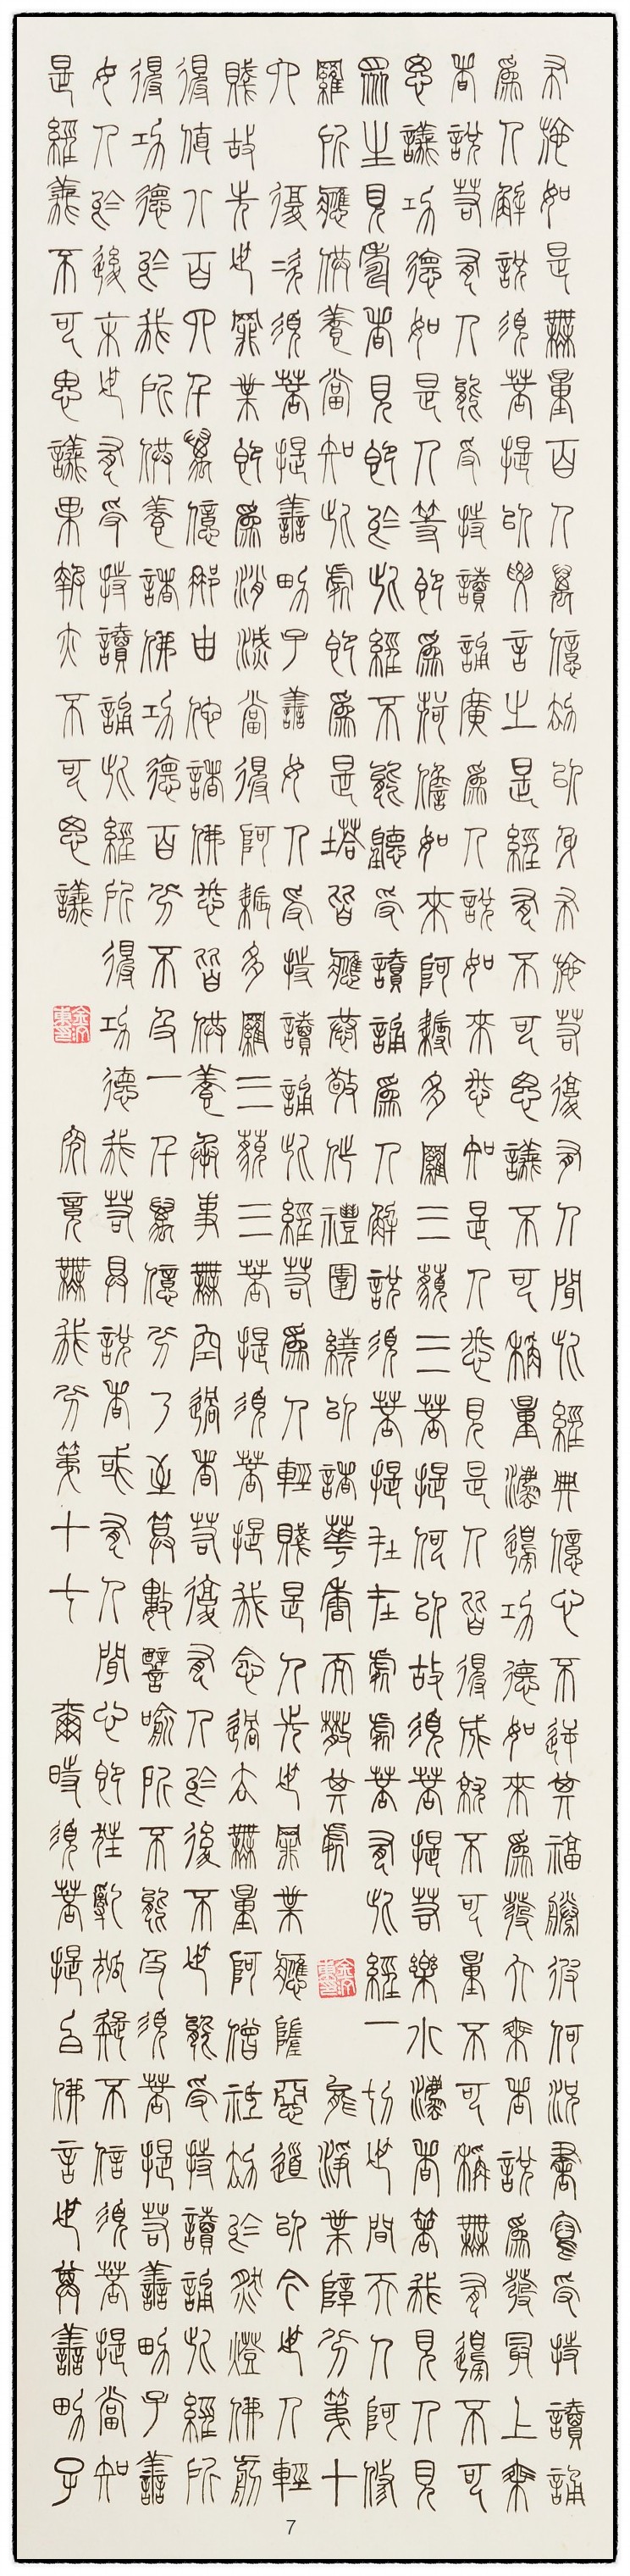 布施如是無量百千萬億劫以身布施若復有人聞此經典信心不逆其福勝彼何況書寫受持讀誦
為人解說須菩提以要言之是經有不可思議不可稱量無邊功德如來為發大乘者說為發最上乘
者說若有人能受持讀誦廣為人說如來悉知是人悉見是人皆得成就不可量不可稱無有邊不可
思議功德如是人等即為荷擔如來阿耨多羅三藐三菩提何以故須菩提若樂小法者著我見人見
眾生見壽者見即於此經不能聽受讀誦為人解說須菩提在在處處若有此經一切世間天人阿修
羅所應供養當知此處即為是塔皆應恭敬作禮圍繞以諸華香而散其處 能淨業障分第十
六 復次須菩提善男子善女人受持讀誦此經若為人輕賤是人先世罪業應墮惡道以今世人輕
賤故先世罪業即為消滅當得阿耨多羅三藐三菩提須菩提我念過去無量阿僧祇劫於然燈佛前
得值八百四千萬億那由他諸佛悉皆供養承事無空過者若復有人於後末世能受持讀誦此經所
得功德於我所供養諸佛功德百分不及一千萬億分乃至算數譬喻所不能及須菩提若善男子善
女人於後末世有受持讀誦此經所得功德我若具說者或有人聞心即狂亂狐疑不信須菩提當知
是經義不可思議果報亦不可思議 究竟無我分第十七 爾時須菩提白佛言世尊善男子
7